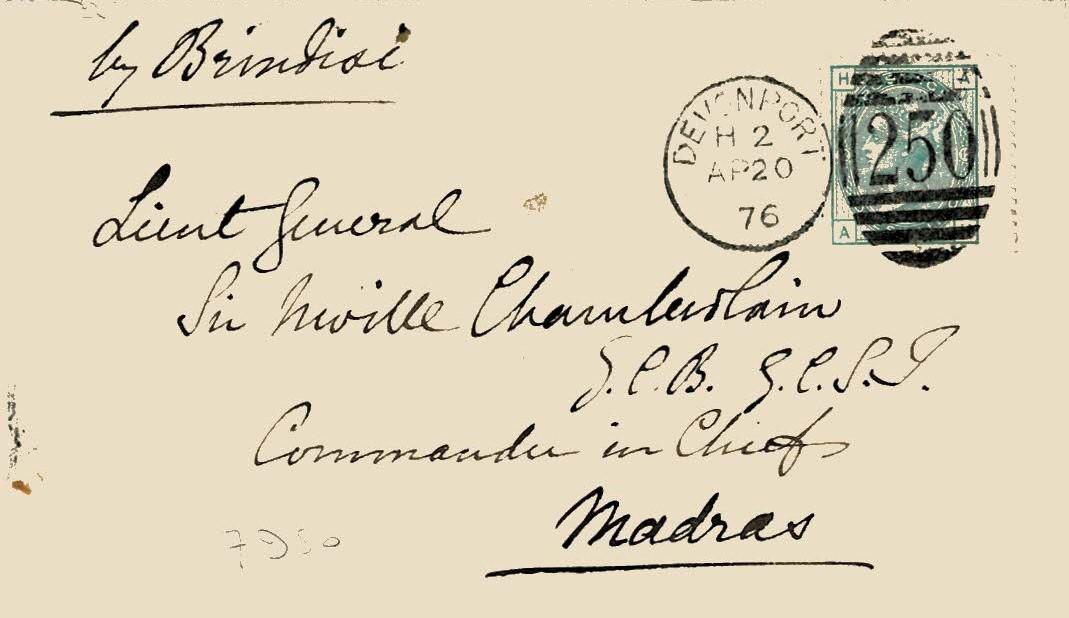 by Brindisi
DEVONPORT
H 2
AP20
76
250
H A
A
Lieut General
Sir Neville Chamberlain
G.C.B. G.C.S.I.
Commander in Chief
Madras